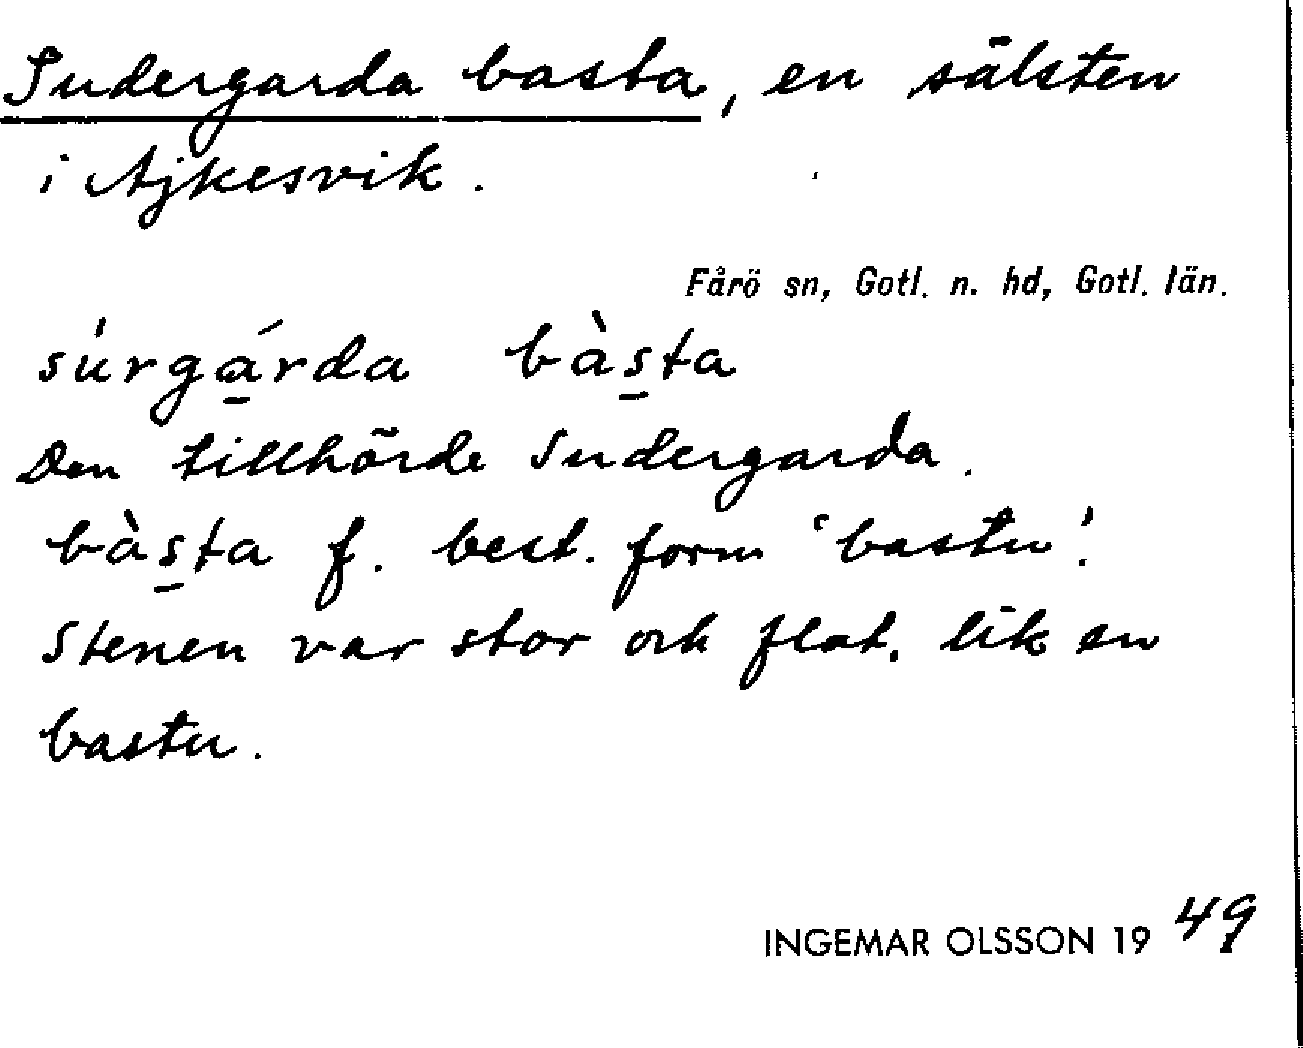 Sudergarda basta, en sälsten
i Ajkesvik.
Fårö sn, Gotl. n. hd, Gotl. län.
su̍rgá̱rda bàs̱ta
Den tillhörde Sudergarda.
bàs̱ta f. best. form 'bastu'.
Stenen var stor och flat, lik en
bastu.
INGEMAR OLSSON 1949